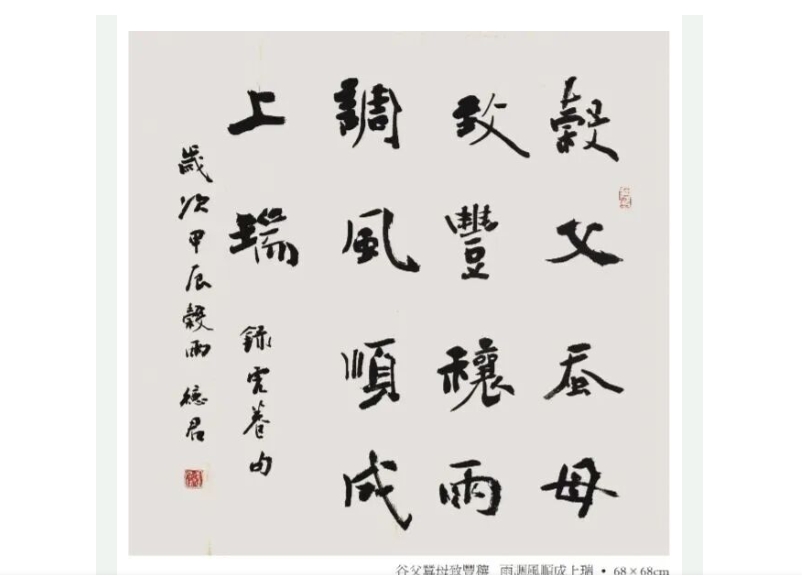 穀父蚕母
致豐穰雨
調風順成
上瑞
錄菴句
歲次甲辰穀雨 德君
谷父蠶母致豐穰 雨調風順成上瑞 • 68×68cm